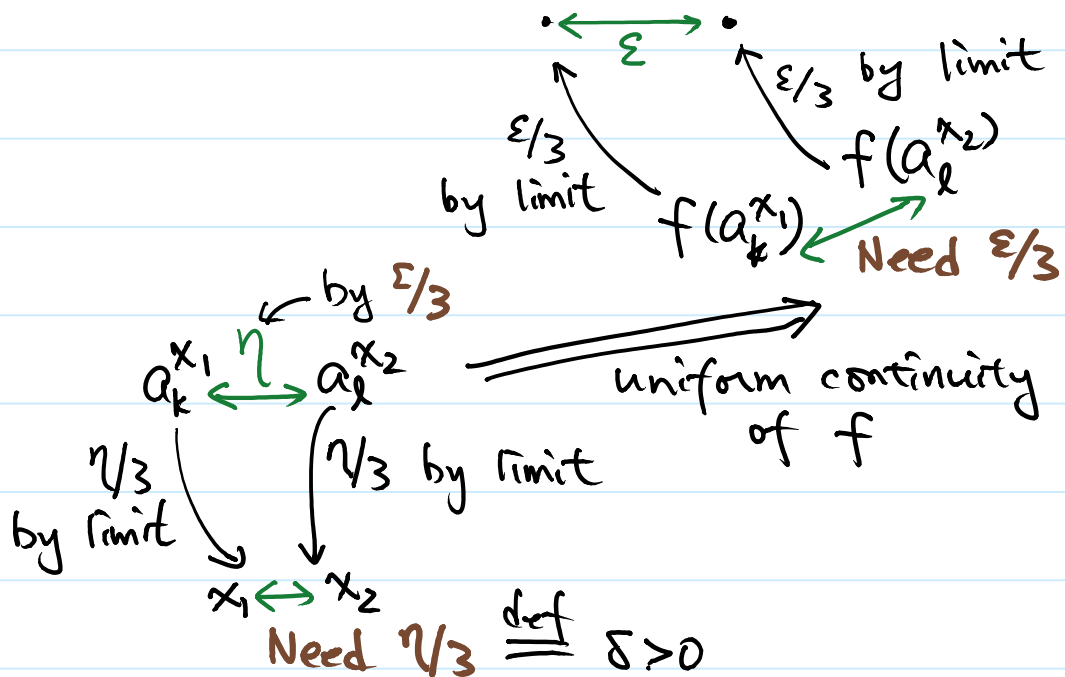 ε
ε/3 by limit
ε/3
by limit
f(a_l^{x_2})
f(a_k^{x_1})
Need ε/3
by ε/3
η
a_k^{x_1} a_l^{x_2}
uniform continuity
of f
η/3
by limit
η/3 by limit
x_1 x_2
Need η/3 \overset{def}{=} δ>0